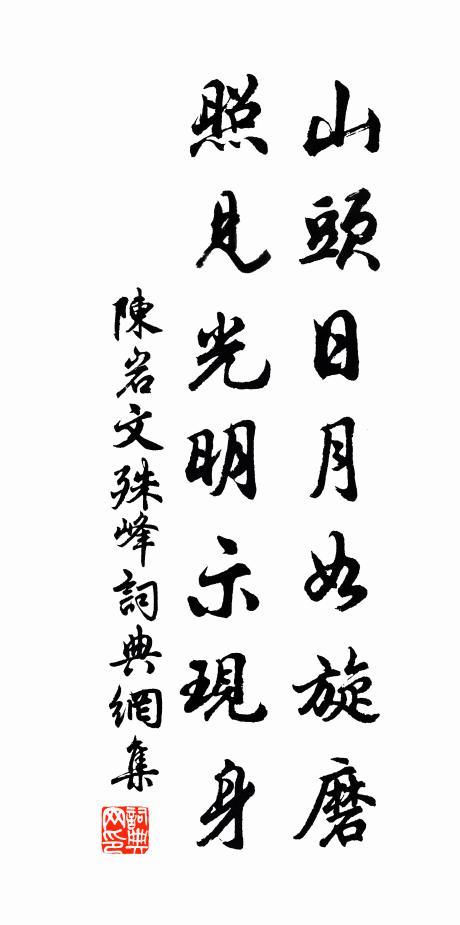 山頭日月如旋磨
照見光明示現身
陳岩文殊峰詞典網集
詞典网印